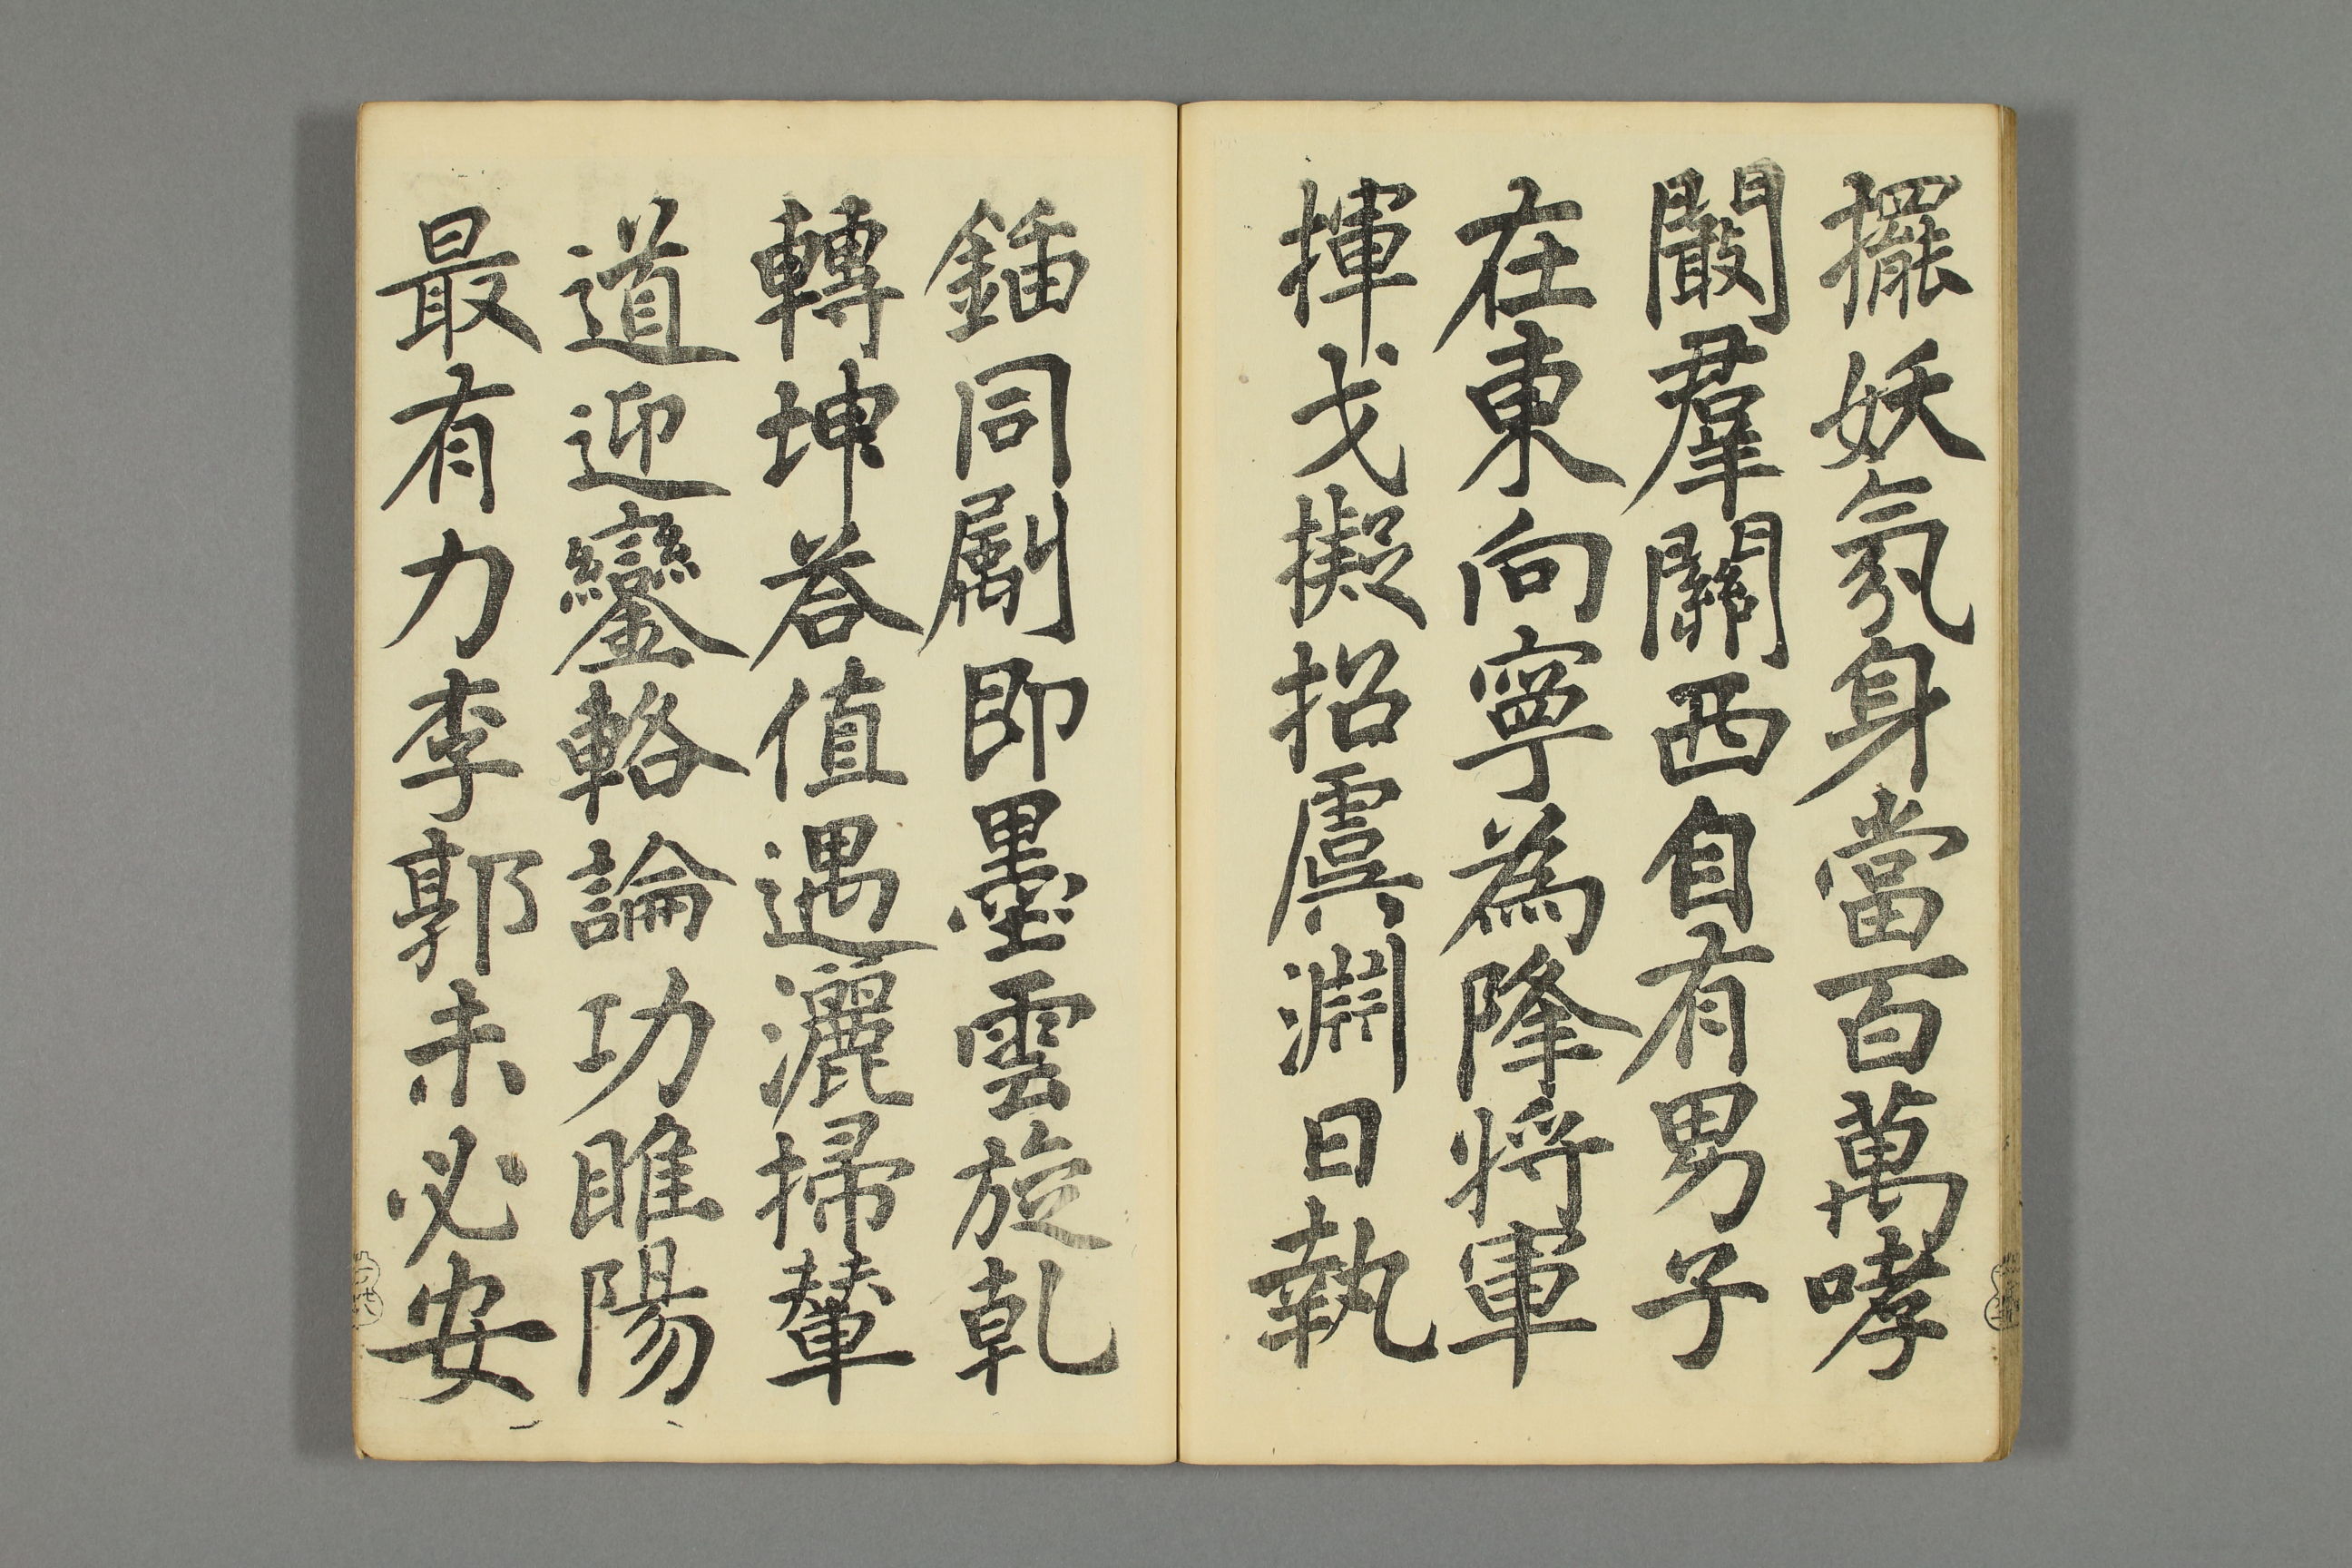 擺妖氛身當百萬哮
闞羣關西自有男子
在東向寧為降將軍
揮戈擬招虞淵日執
鍤同劚即墨雲旋乾
轉坤荅值遇灑掃輦
道迎鑾輅論功睢陽
最有力李郭未必安